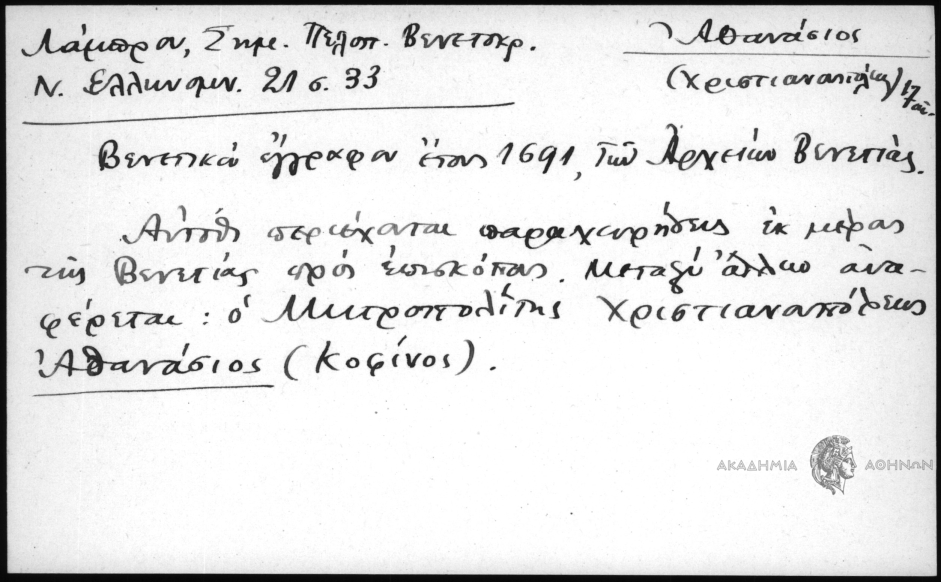 Λάμπρου, Σημ. Πελοπ. Βενετοκρ.
Ν. Ελληνομν. 21 σ. 33
Ἀθανάσιος
(Χριστιανουπόλεως) 17 αἰ.
Βενετικὸν ἔγγραφον ἔτους 1691, τῶν Ἀρχείων Βενετίας.
Αὐτόθι περιέχονται παραχωρήσεις ἐκ μέρους
τῆς Βενετίας πρὸς ἐπισκόπους. Μεταξὺ ἄλλων ἀνα-
φέρεται: ὁ Μητροπολίτης Χριστιανουπόλεως
Ἀθανάσιος (Κοφίνος).
ΑΚΑΔΗΜΙΑ ΑΘΗΝΩΝ